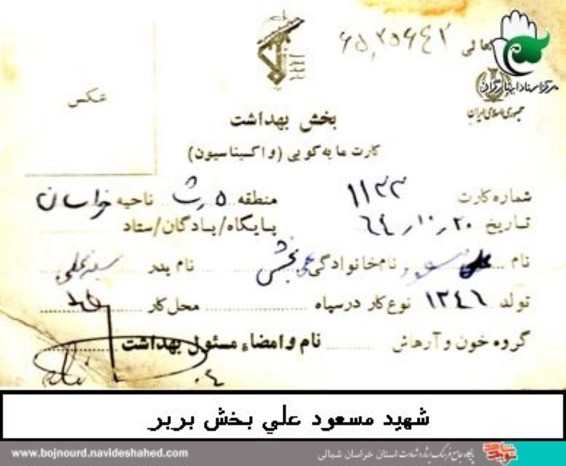 تعالی ۶۵,۳۵۶۴۲
مرکز اسناد ایثارگران
جمهوری اسلامی ایران
عکس
بخش بهداشت
کارت مایه کوبی (واکسیناسیون)
شماره کارت ۱۱۳۳ منطقه ۵ ناحیه خراسان
تاریخ ۶۴٫۱۰٫۲۰ پایگاه/پادگان/ستاد
نام نام خانوادگی بخش نام پدر
تولد ۱۳۴۶ نوع کار در سپاه محل کار
گروه خون و آرهاش نام و امضاء مسئول بهداشت
شهید مسعود علي بخش بربر
www.bojnourd.navideshahed.com
پایگاه جامع فرهنگ ایثار و شهادت استان خراسان شمالی